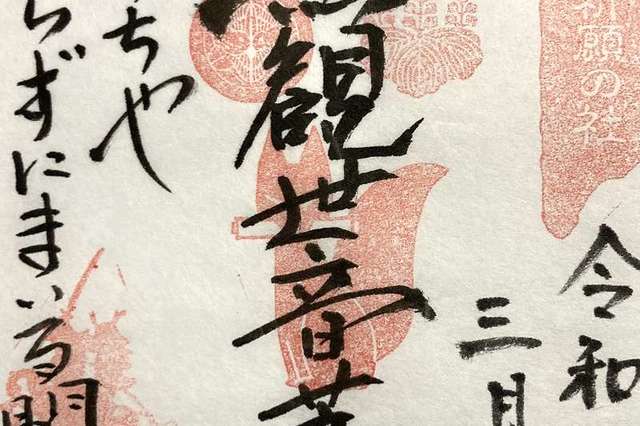 祈願の社
令和
三月
観世音菩
ちや
らずにまいる門